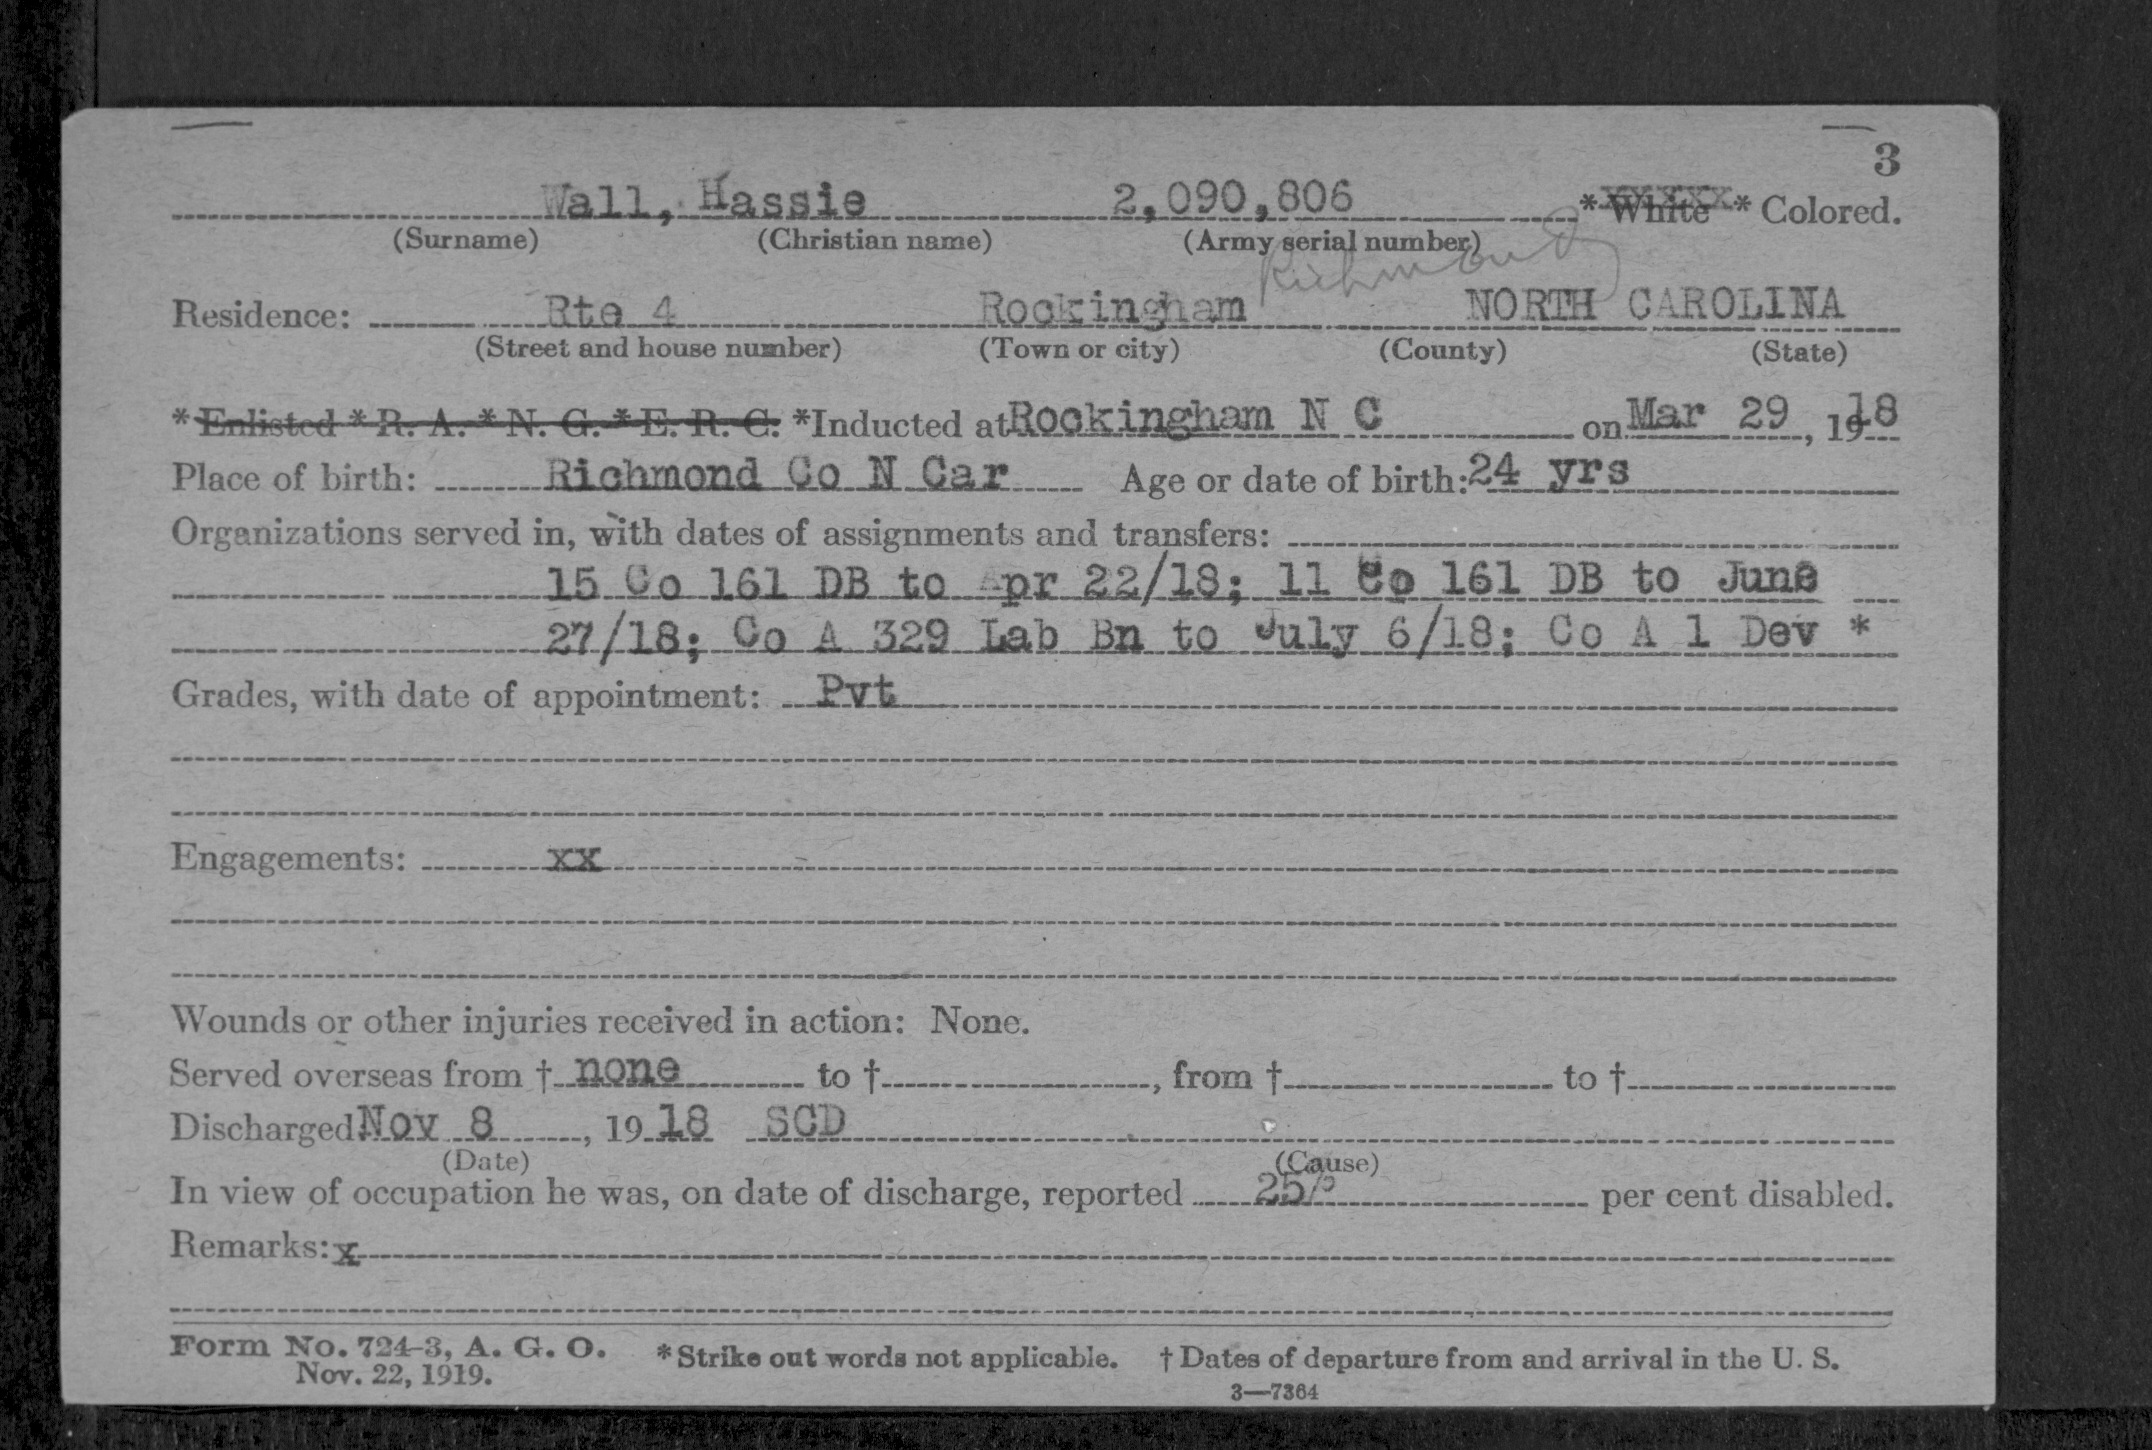 3
Wall, Hassie 2,090,806 * White * Colored.
(Surname) (Christian name) (Army serial number)
Richmond
Residence: Rte 4 Rockingham NORTH CAROLINA
(Street and house number) (Town or city) (County) (State)
* Enlisted * R. A. * N. G. * E. R. C. *Inducted at Rockingham N C on Mar 29, 1918
Place of birth: Richmond Co N Car Age or date of birth: 24 yrs
Organizations served in, with dates of assignments and transfers:
15 Co 161 DB to Apr 22/18; 11 Co 161 DB to June
27/18; Co A 329 Lab Bn to July 6/18; Co A 1 Dev *
Grades, with date of appointment: Pvt
Engagements: xx
Wounds or other injuries received in action: None.
Served overseas from † none to †, from † to †
Discharged Nov 8, 1918 SCD
(Date) (Cause)
In view of occupation he was, on date of discharge, reported 25% per cent disabled.
Remarks: x
Form No. 724-3, A. G. O. * Strike out words not applicable. † Dates of departure from and arrival in the U. S.
Nov. 22, 1919.
3—7364